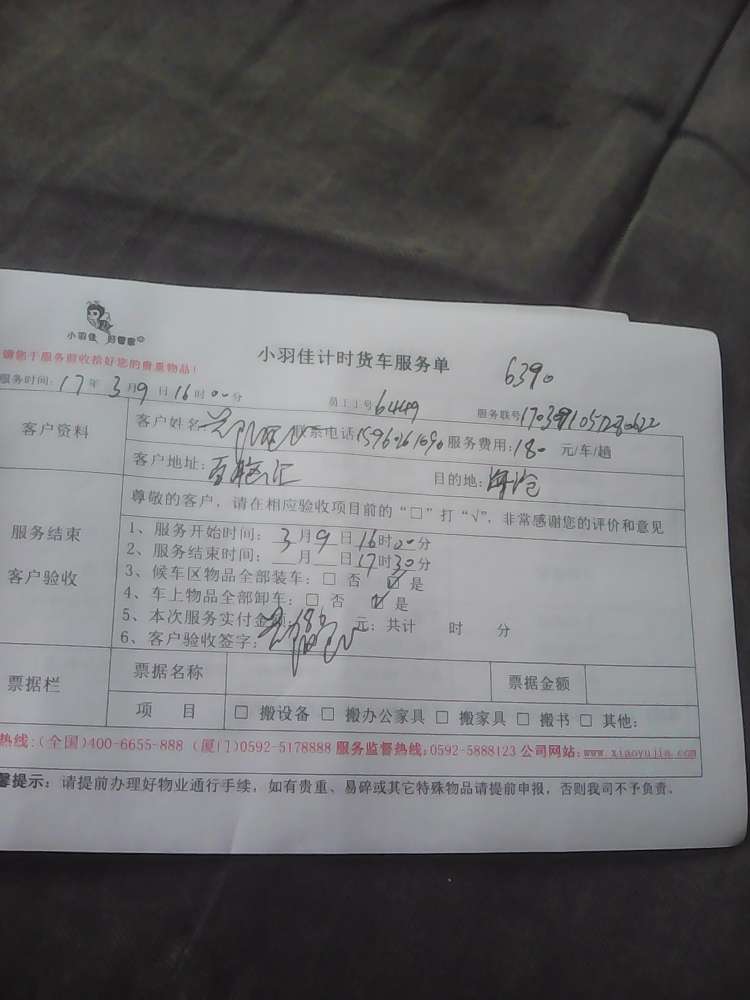 小羽佳 好管家
小羽佳计时货车服务单
6390
请您于服务前收拾好您的贵重物品!
服务时间: 17年3月9日16时00分
员工工号6449
服务联号
客户资料
客户姓名
联系电话 服务费用:180 元/车/趟
客户地址:
目的地: 海沧
服务结束
客户验收
尊敬的客户, 请在相应验收项目前的“□”打“√”, 非常感谢您的评价和意见
1、服务开始时间: 3月9日16时00分
2、服务结束时间: __月__日17时30分
3、候车区物品全部装车: □ 否 ☑ 是
4、车上物品全部卸车: □ 否 ☑ 是
5、本次服务实付金额: 180 元; 共计 时 分
6、客户验收签字:
票据栏
票据名称
票据金额
项 目
□ 搬设备 □ 搬办公家具 □ 搬家具 □ 搬书 □ 其他:
热线:(全国)400-6655-888 (厦门)0592-5178888 服务监督热线:0592-5888123 公司网站:www.xiaoyujia.com
馨提示: 请提前办理好物业通行手续, 如有贵重、易碎或其它特殊物品请提前申报, 否则我司不予负责。